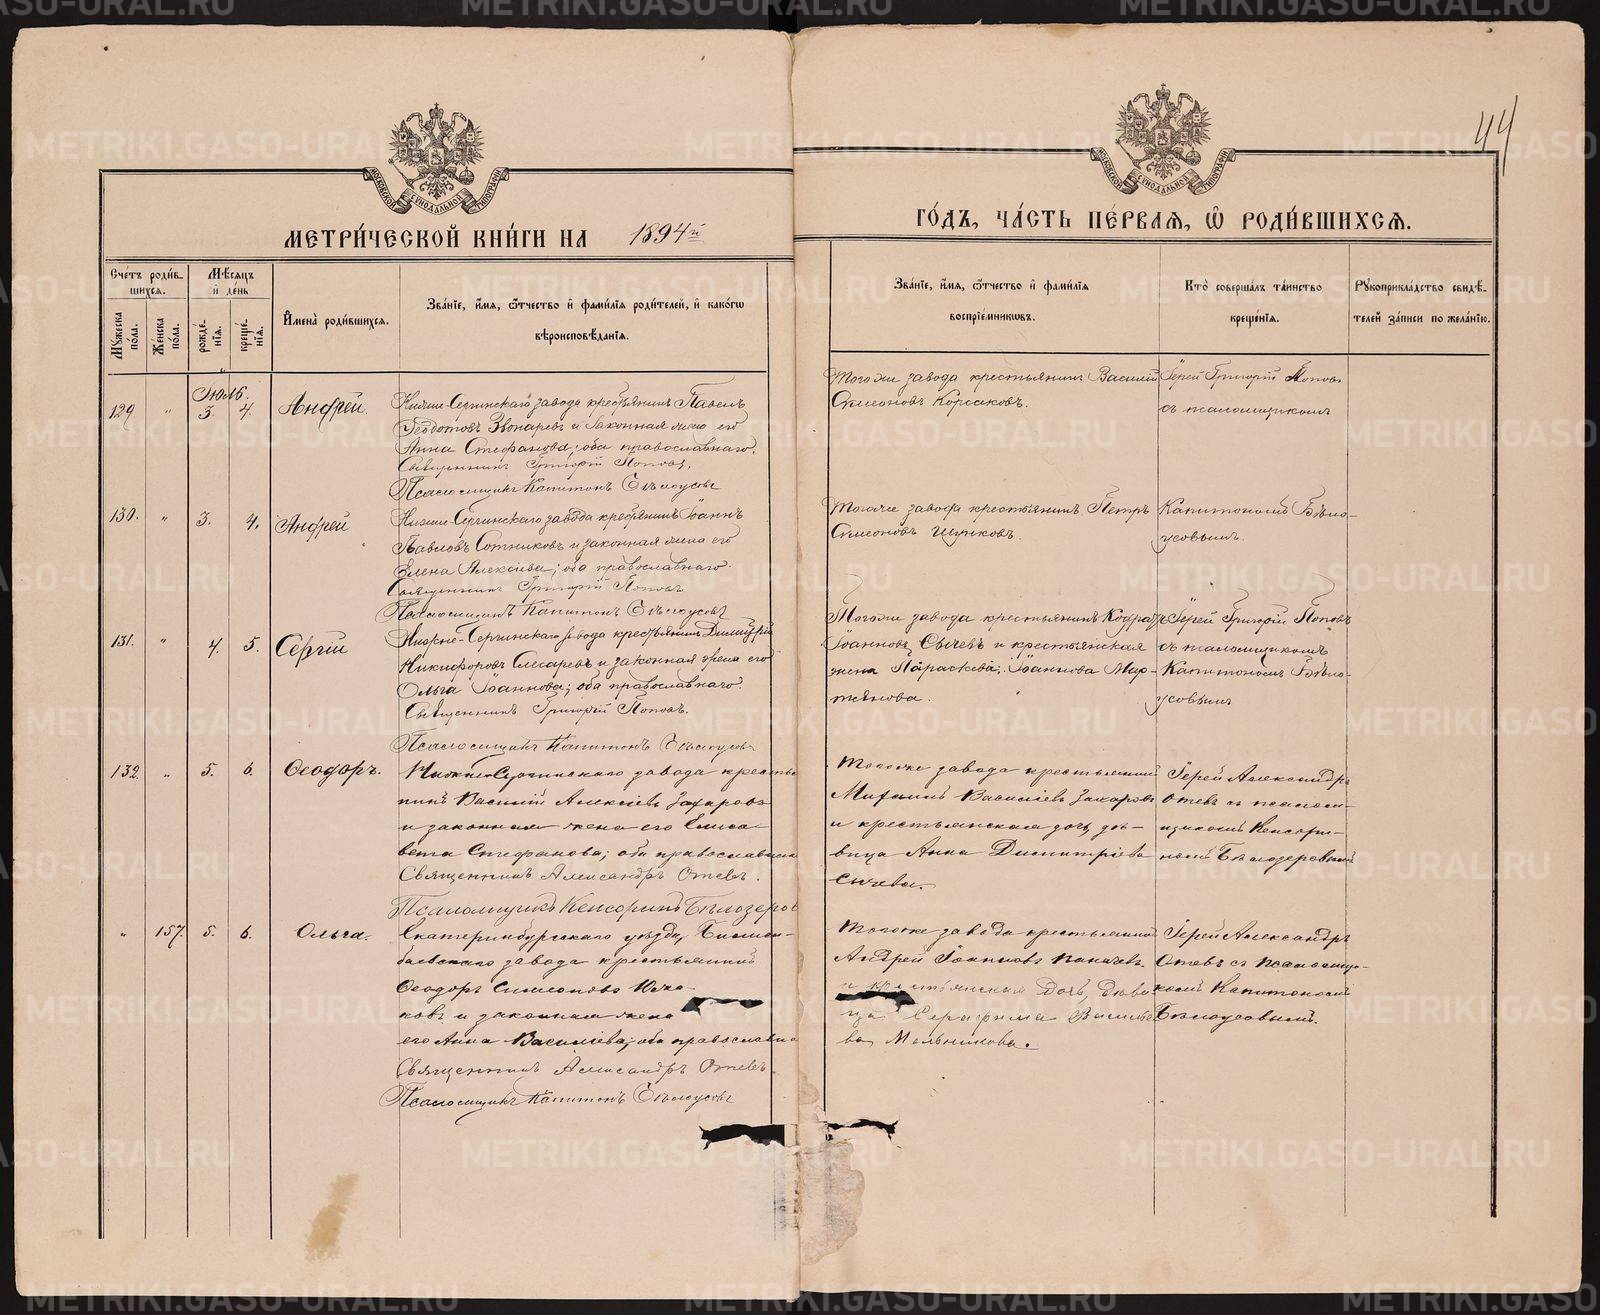 44
МЕТРИ́ЧЕСКОЙ КНИ́ГИ НА 1894й
ГО́ДЪ, ЧА́СТЬ ПЕ́РВАЯ, Ѿ РОДИ́ВШИХСЯ.
МОСКОВСКОЙ СѴНОДАЛЬНОЙ ТИПОГРАФІИ
МОСКОВСКОЙ СѴНОДАЛЬНОЙ ТИПОГРАФІИ
Сче́тъ роди́вшихся.
Му́жеска по́ла.
Же́нска по́ла.
Мѣ́сяцъ и де́нь
рожде́нія.
креще́нія.
Имена̀ роди́вшихся.
Зва́ніе, и́мя, ѻ҆́тчество и фами́лія роди́телей, и како́гѡ
вѣроисповѣ́данія.
Зва́ніе, и́мя, ѻ҆́тчество и фами́лія
воспріе́мникѡвъ.
Кто̀ соверша́лъ та́инство
креще́нія.
Рꙋкоприкла́дство свидѣ́телей за́писи по жела́нію.
Іюль.
129 " 3. 4. Андрей.
Нижне-Сергинскаго завода крестьянинъ Павелъ
Ѳеодотовъ Звонаревъ и законная жена его
Анна Стефанова; оба православнаго.
Священникъ Григорій Поповъ.
Псаломщикъ Капитонъ Бѣлоусовъ
Тогоже завода крестьянинъ Василій
Симеоновъ Корсаковъ.
Іерей Григорій Поповъ
съ псаломщикомъ
130. " 3. 4. Андрей
Нижне-Сергинскаго завода крестьянинъ Іоаннъ
Павловъ Сотниковъ и законная жена его
Елена Алексіева; оба православнаго.
Священникъ Григорій Поповъ
Псаломщикъ Капитонъ Бѣлоусовъ
Тогоже завода крестьянинъ Петръ
Симеоновъ
Капитономъ Бѣло-
усовымъ.
131. " 4. 5. Сергій
Нижне-Сергинскаго завода крестьянинъ Димитрій
Никифоровъ Слесаревъ и законная жена его
Ольга Іоаннова; оба православнаго.
Священникъ Григорій Поповъ.
Псаломщикъ Капитонъ Бѣлоусовъ
Тогоже завода крестьянинъ Кодратъ
Іоанновъ Сычевъ и крестьянская
жена Параскева Іоаннова Мар-
тьянова.
Іерей Григорій Поповъ
съ псаломщикомъ
Капитономъ Бѣло-
усовымъ
132. " 5. 6. Ѳеодоръ.
Нижне-Сергинскаго завода кресть
нинъ Василій Алексіевъ Захаровъ
и законная жена его Елиса-
вета Стефанова; оба православнаго
Священникъ Александръ Отевъ.
Псаломщикъ Кенсоринъ Бѣлозеров
Тогоже завода крестьянинъ
Василіевъ Захаровъ
и крестьянская дочь, дѣ-
вица Анна Димитріева
Сычева.
Іерей Александръ
Отевъ съ псалом-
щикомъ Кенсори-
номъ Бѣлозеровымъ
" 157 5. 6. Ольга.
Екатеринбургскаго уѣзда, Билим-
баевскаго завода крестьянинъ
Ѳеодоръ Симеоновъ Южа-
ковъ и законная жена
его Анна Василіева; оба православна
Священникъ Александръ Отевъ.
Псаломщикъ Капитонъ Бѣлоусовъ
Тогоже завода крестьянинъ
Андрей Іоанновъ
и крестьянская дочь, дѣви-
ца Серафима Василіе
ва Мельникова.
Іерей Александръ
Отевъ съ псаломщи-
комъ Капитономъ
Бѣлоусовымъ.
METRIKI.GASO-URAL.RU